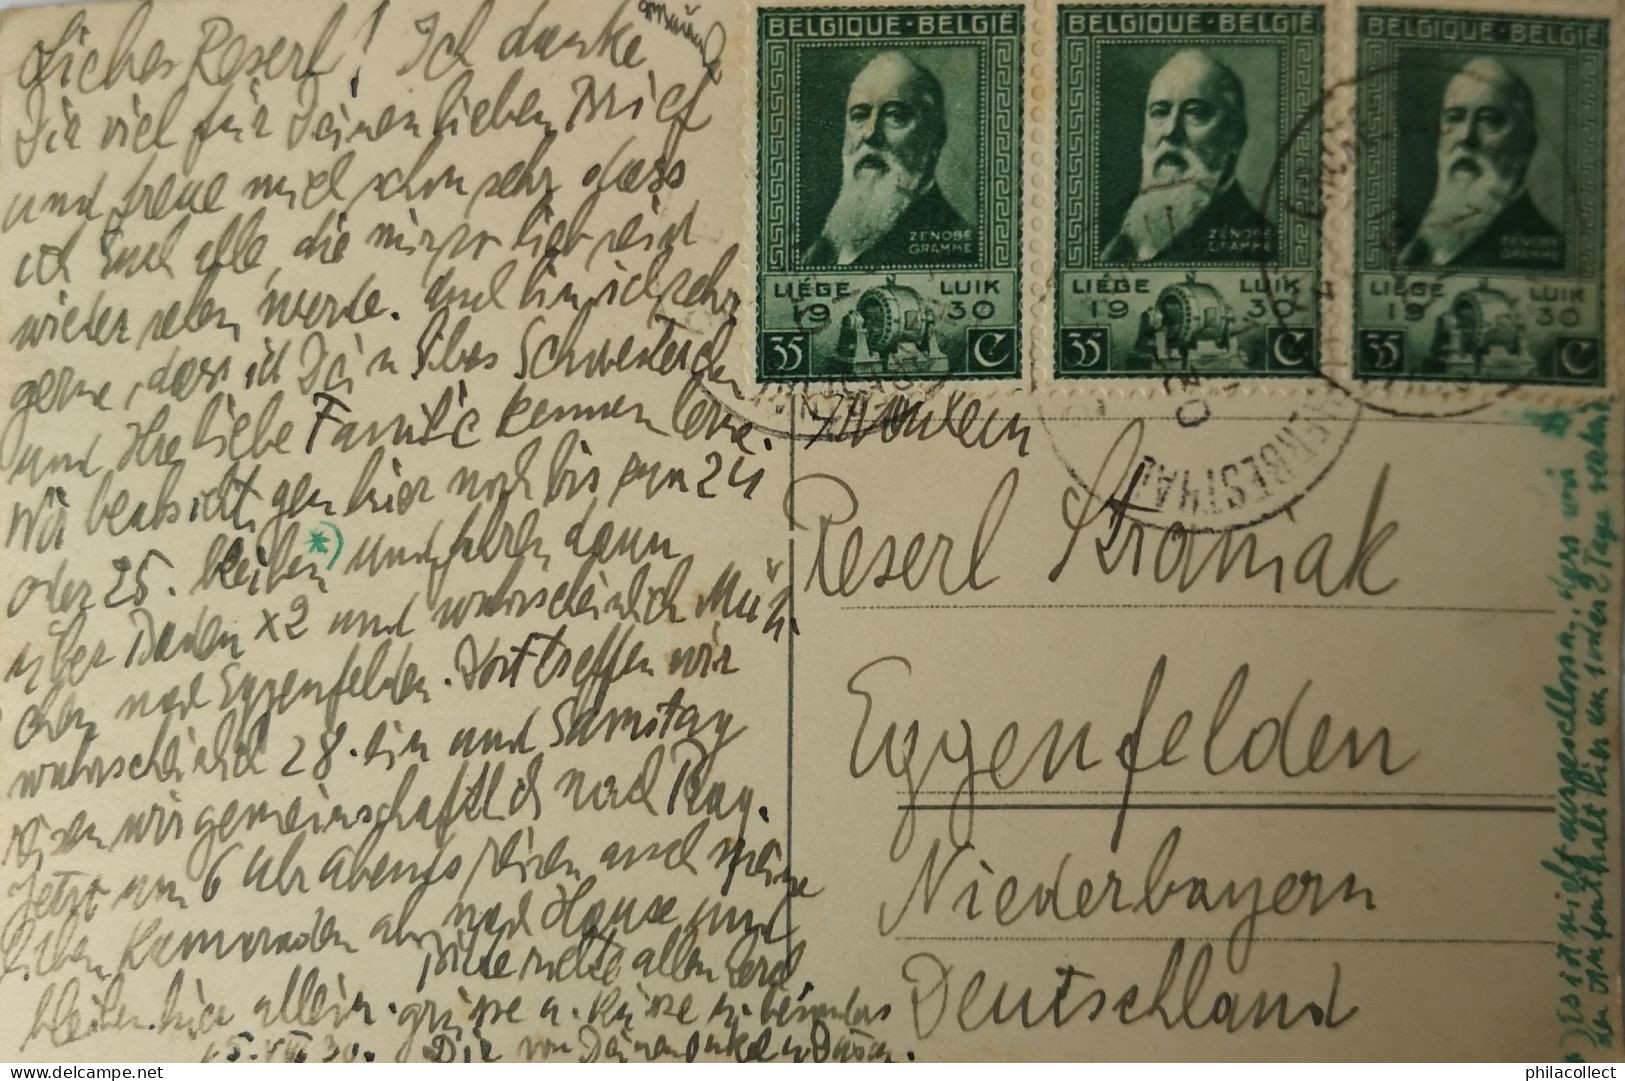 Liebes Reserl! Ich danke
Dir viel für Deinen lieben Brief
und freue mich schon sehr, dass
ich Euch alle, die mir so lieb seid
wieder sehen werde. Auch bin ich sehr
gerne, dass ich Dein liebes Schwesterchen
und Ihre liebe Familie kennen lerne.
Wir beabsichtigen hier noch bis zum 24
oder 25. bleiben *) und fahren dann
über Baden x2 und wahrscheinlich Mün-
chen nach Eggenfelden. Dort treffen wir
wahrscheinlich 28. ein und Samstag
reisen wir gemeinschaftlich nach Prag.
Jetzt um 6 Uhr abends reisen auch meine
lieben Kameraden ab nach Hause und
bleiben hier allein. Bitte richte allen herzl.
grüsse u. küsse u. besonders
15. VIII 30. Dir von Deinem Onkel
BELGIQUE·BELGIË
ZENOBE
GRAMME
LIÉGE LUIK
1930
35 C
BELGIQUE·BELGIË
ZENOBE
GRAMME
LIÉGE LUIK
1930
35 C
BELGIQUE·BELGIË
ZENOBE
GRAMME
LIÉGE LUIK
1930
35 C
HERBESTHAL
Fräulein
Reserl Stromak
Eggenfelden
Niederbayern
Deutschland
*) Es ist nicht ausgeschlossen, dass wir
den Aufenthalt hier um 1 oder 2 Tage
philacollect